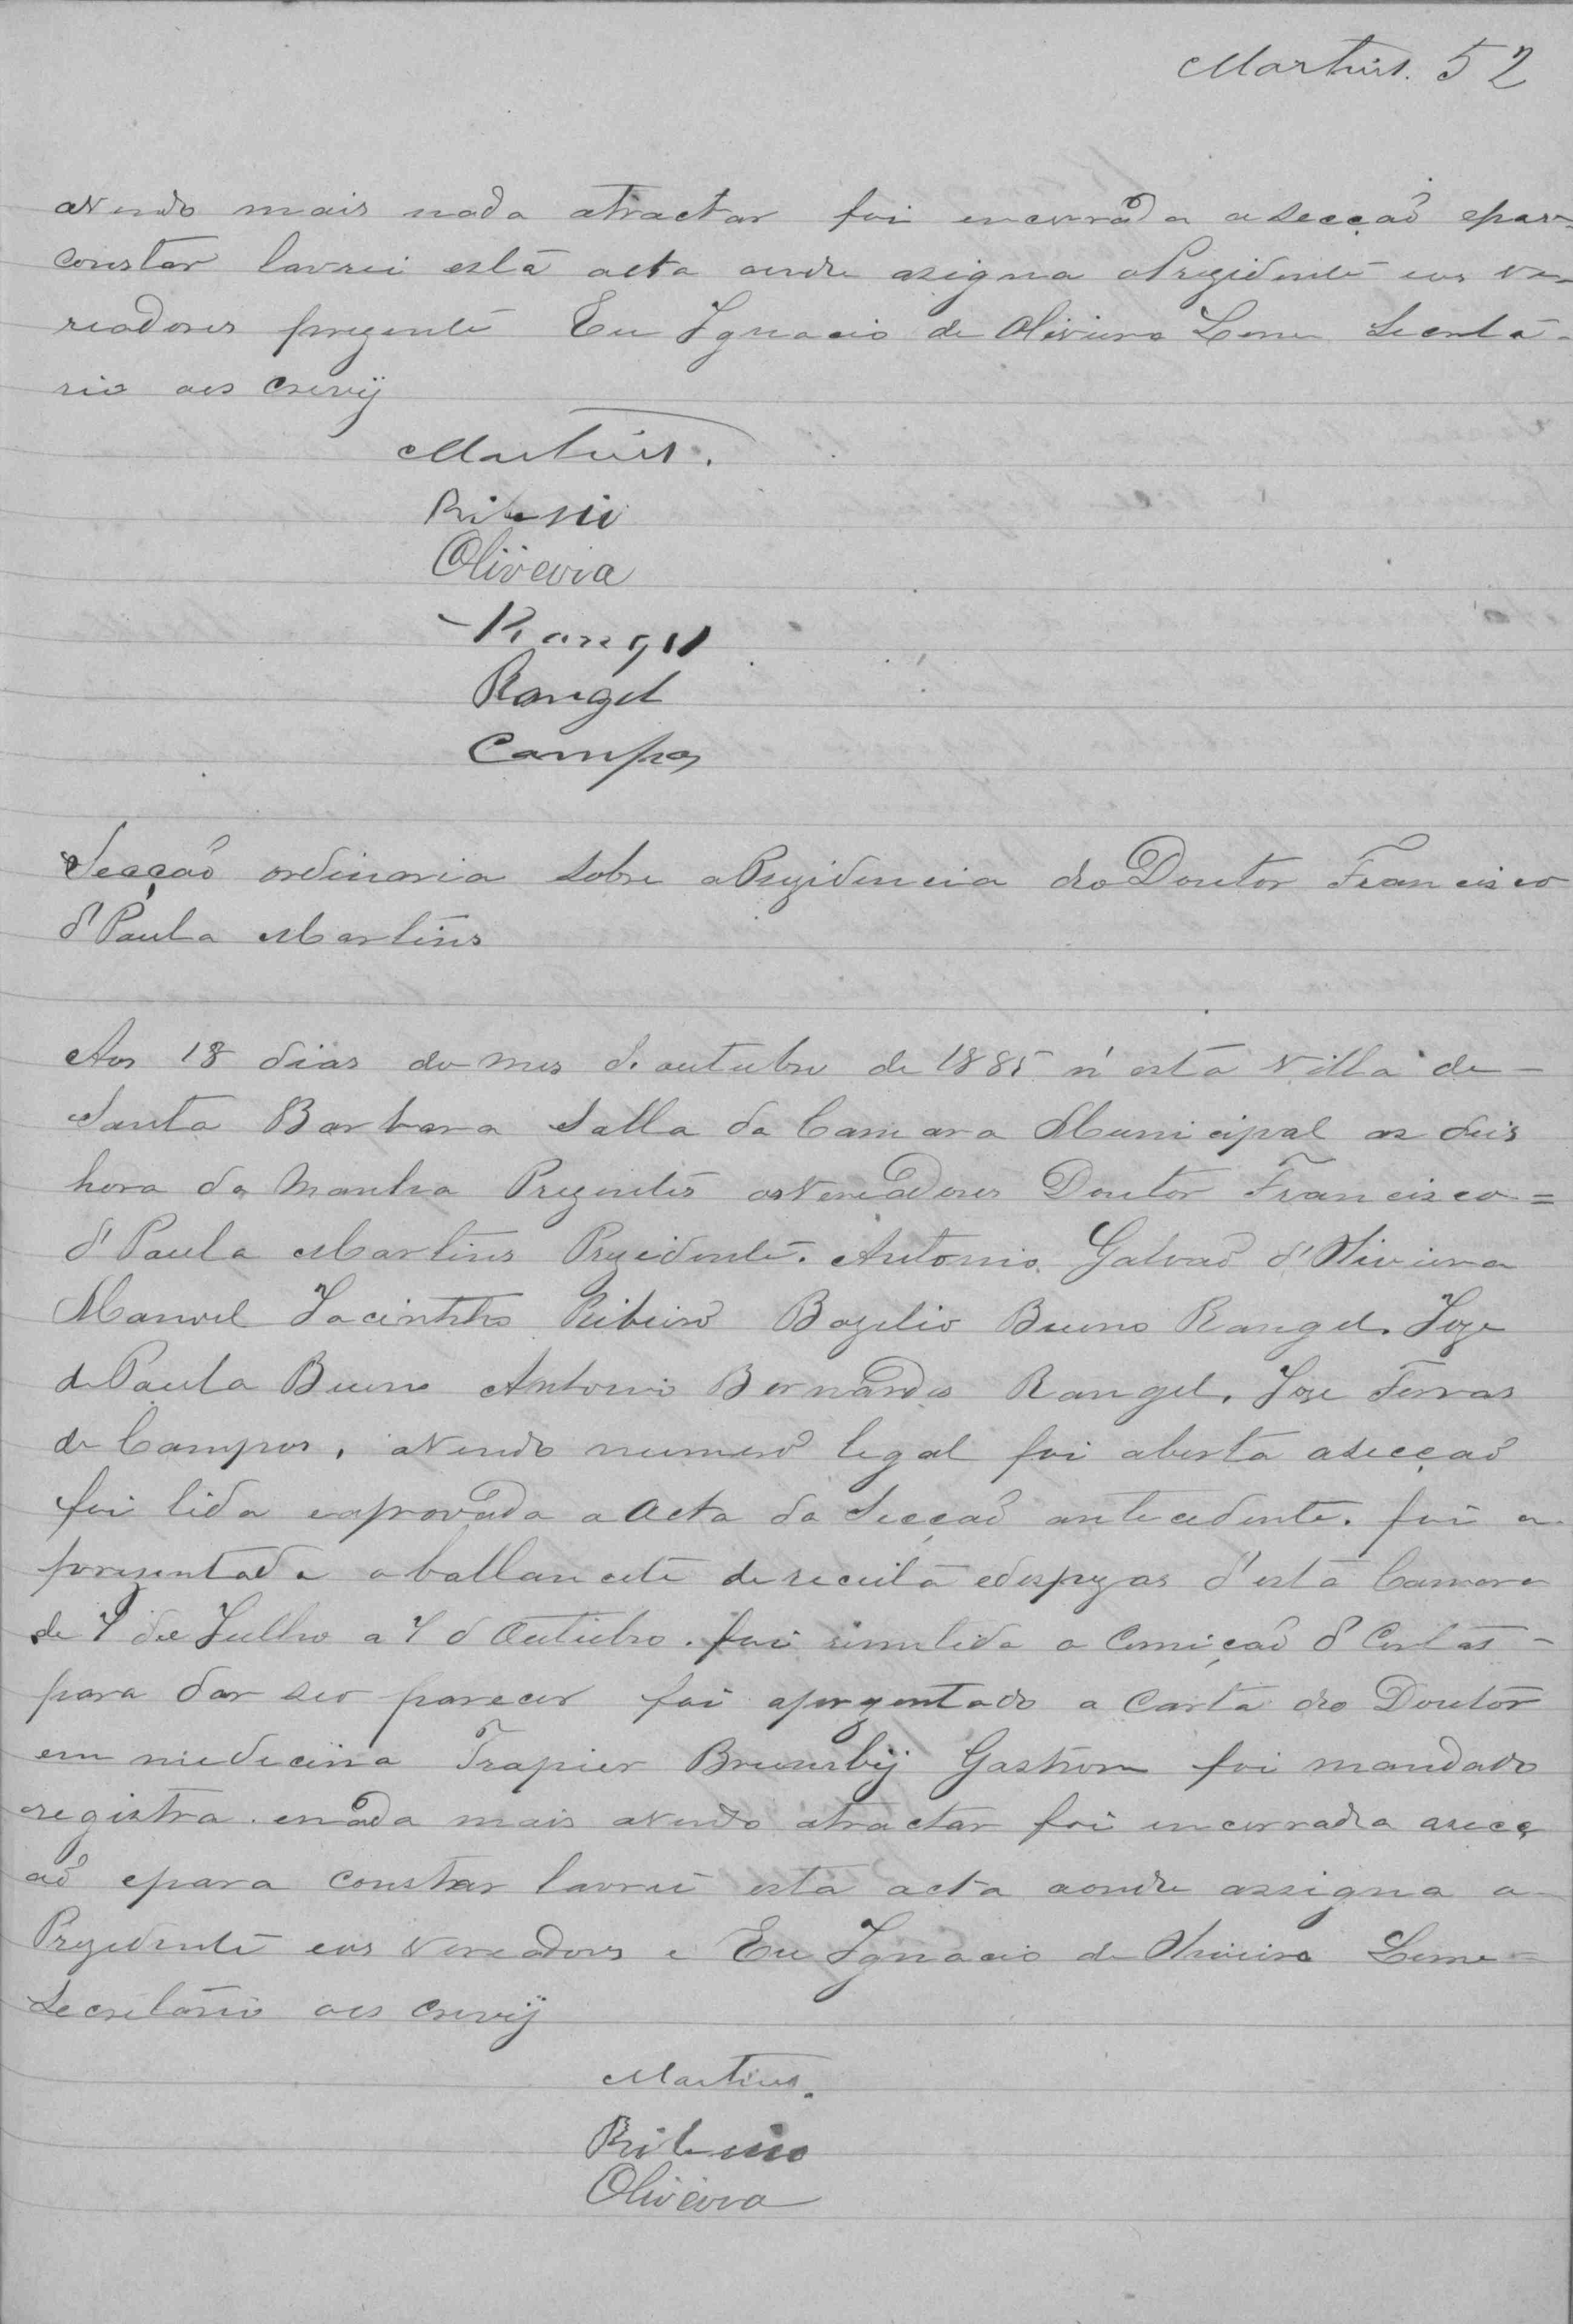 Martins. 52
avendo mais nada atractar foi encerrada a secção epara
constar lavrei esta acta onde asigna oPrezidente eos ve-
readores prezente Eu Ignacio de Oliveira Leme Secreta-
rio aes crevij
Martins.
Ribeiro
Oliveira
Rangel
Rangel
Campos
Secção ordinaria sobre aPrezidencia do Doutor Francisco
d'Paula Martins
Aos 18 dias do mes d. outubro de 1885 n'esta Villa de-
Santa Barbara Salla da Camara Municipal as deis
hora da Manha Prezentes osVereadores Doutor Francisco=
d'Paula Martins Prezidente. Antonio Galvaõ d'Oliveira
Manoel Jacintho Ribeiro Bazilio Bueno Rangel. Joze
de Paula Bueno Antonio Bernardes Rangel, Joze Ferras
de Campos, avendo numero legal foi aberta asecçaõ
foi lida eaprovada a acta da Secçaõ antecedente. foi a
prezentada oballancete dereceita edespezas d'esta Camara
de 1 de Julho a 1 d Outubro. foi remetida a Comiçaõ d' Contas-
para dar seo parecer foi aprezentado a Carta do Doutor
em medicina Trapier Gaston foi mandado
registra. enada mais avendo atractar foi encerrada asecç
aõ epara constar lavrei esta acta aonde assigna o
Prezidente eos Vereadores e Eu Ignacio de Oliveira Leme-
Secretario aes crevij
Martins.
Ribeiro
Oliveira